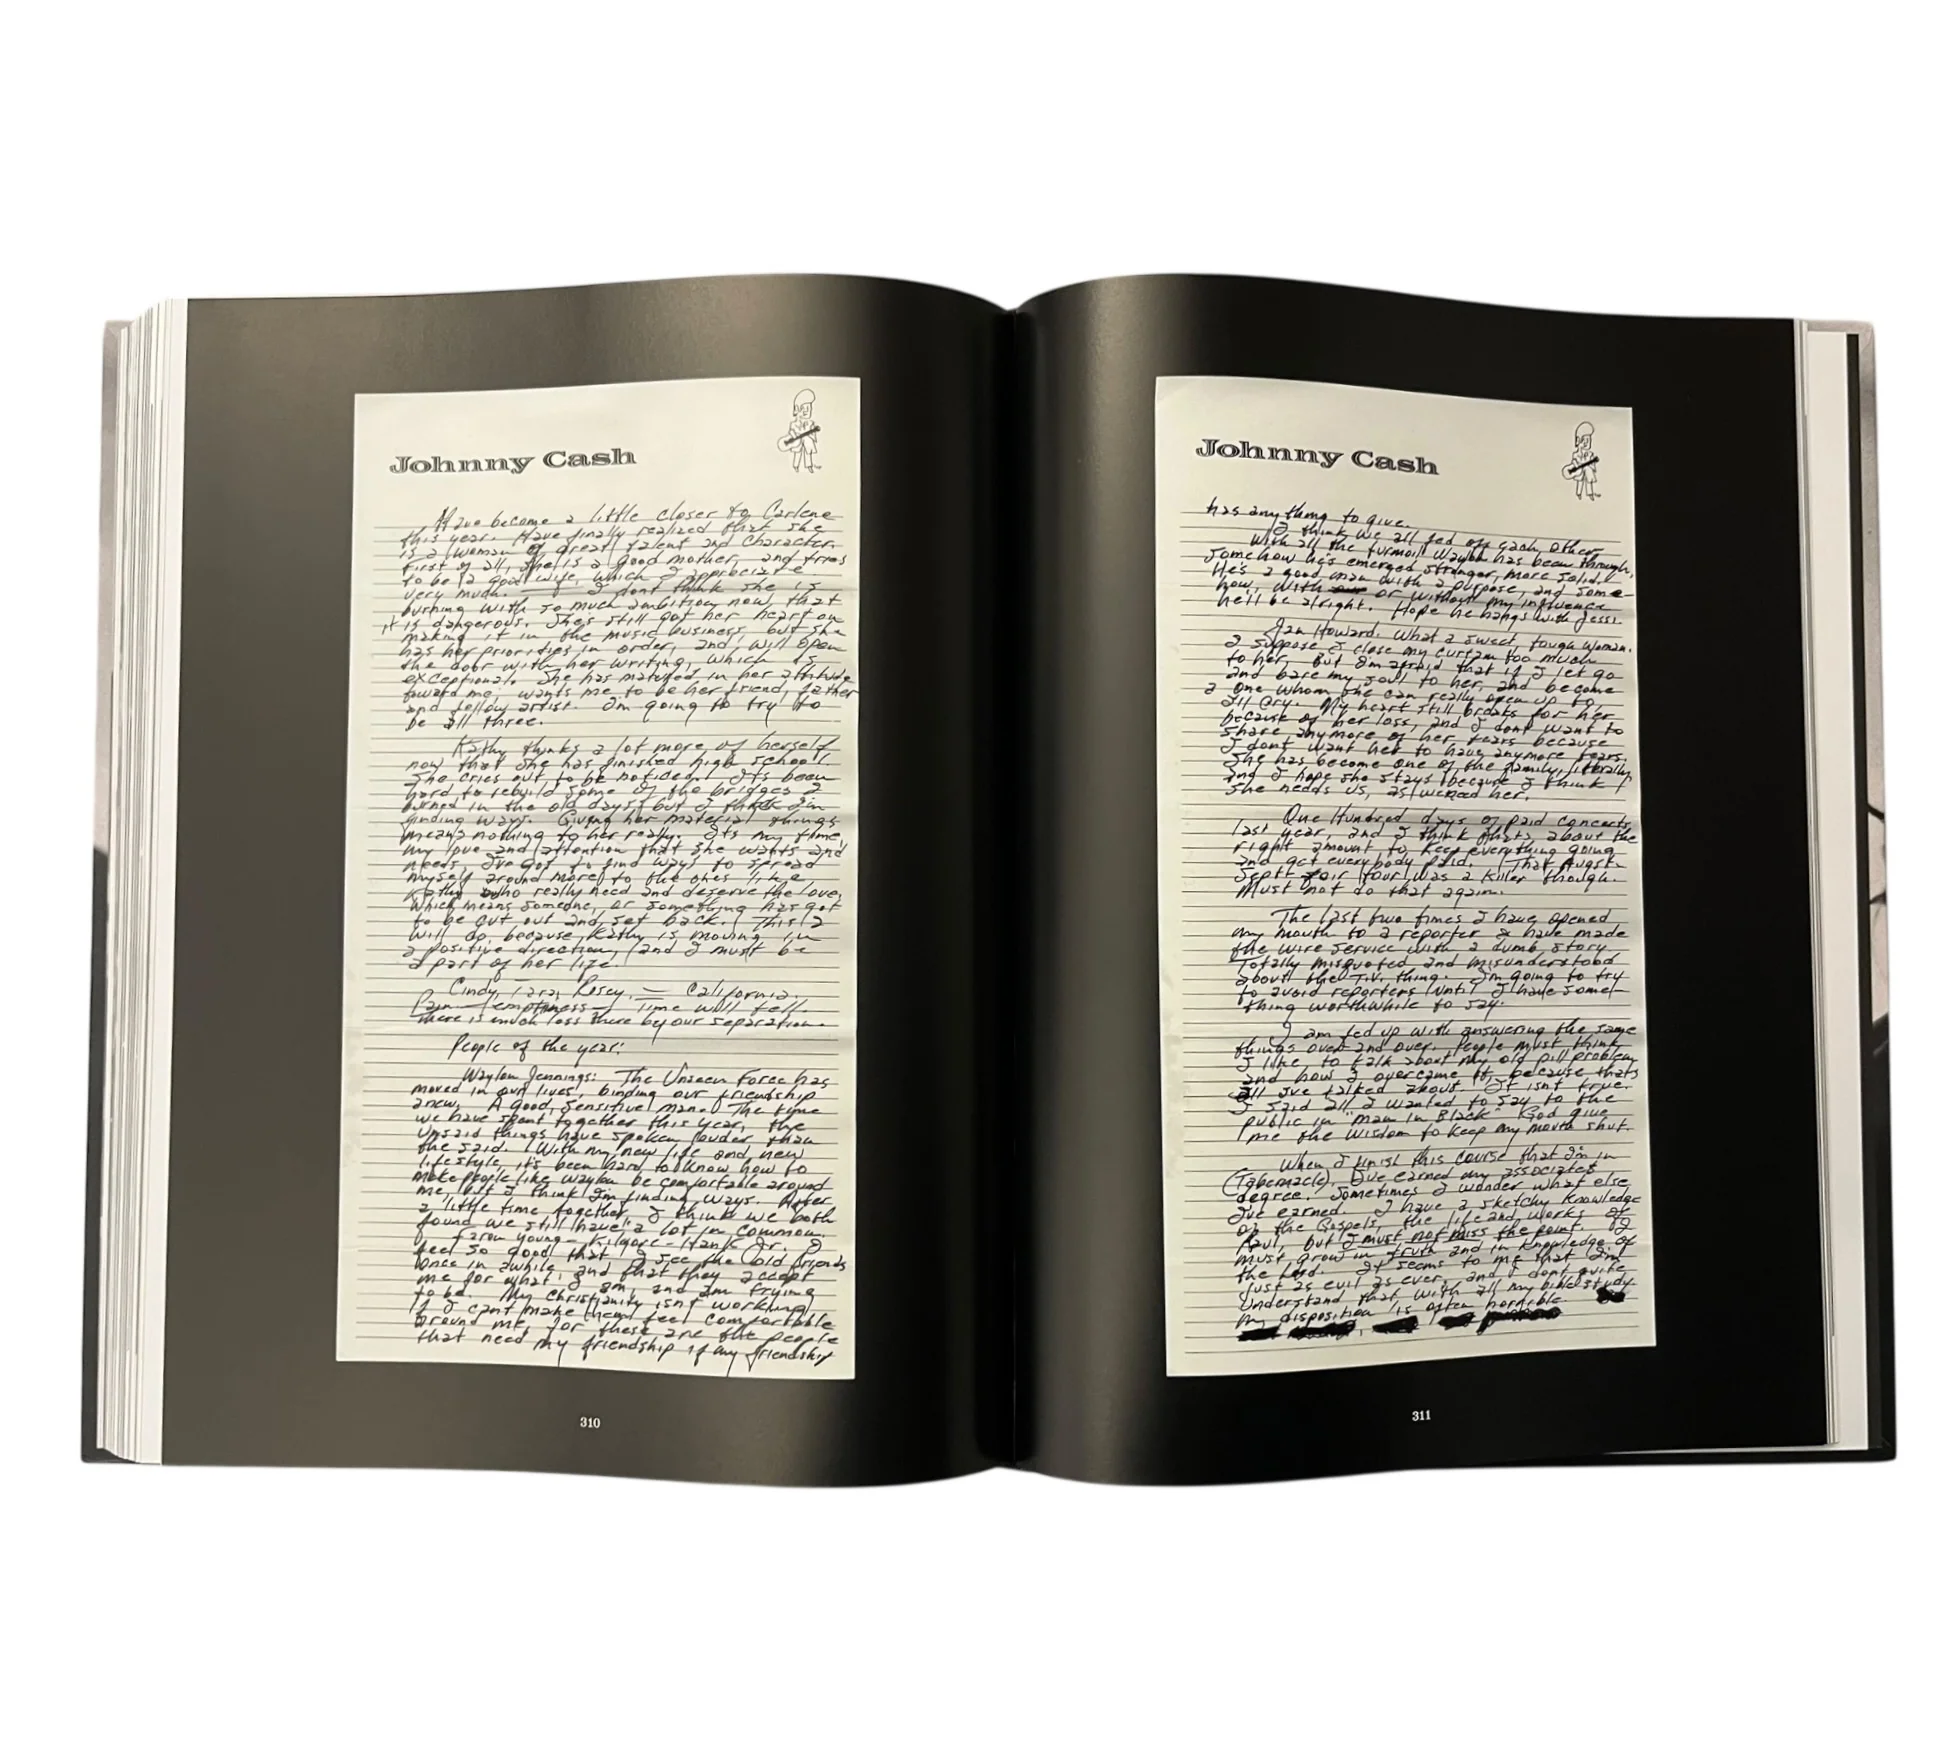 Johnny Cash
Have become a little closer to Carlene
this year. Have finally realized that she
is a woman of great talent and character.
First of all, she is a good mother, and tries
to be a good wife, which I appreciate
very much. — I dont think she is
burning with so much ambition now, that
it is dangerous. She's still got her heart on
making it in the music business, but she
has her priorities in order, and will open
the door with her writing, which is
exceptional. She has matured in her attitude
toward me, wants me to be her friend, father
and fellow artist. I'm going to try to
be all three.
Kathy thinks a lot more of herself
now that she has finished high school.
She cries out to be noticed. It's been
hard to rebuild some of the bridges I
burned in the old days, but I think I'm
finding ways. Giving her material things
means nothing to her really. Its my time,
my love and attention that she wants and
needs. I've got to find ways to spread
myself around more, to the ones like
Kathy who really need and deserve the love,
which means someone, or something has got
to be cut out and set back. This I
will do, because Kathy is moving in
a positive direction, and I must be
a part of her life.
Cindy, Tara, Rosey, — California.
Pain — emptiness — Time will tell.
There is much loss there by our separation.
People of the year:
Waylon Jennings: The Unseen Force has
moved in our lives, binding our friendship
anew. A good, sensitive man. The time
we have spent together this year, the
unsaid things have spoken louder than
the said. With my new life and new
lifestyle, it's been hard to know how to
make people like Waylon be comfortable around
me, but I think I'm finding ways. After
a little time together, I think we both
found we still have a lot in common.
Faron Young - Kilgore - Hank Jr. I
feel so good that I see the old friends
once in awhile, and that they accept
me for what I am, and am trying
to be. My Christianity isn't working
if I cant make them feel comfortable
around me, for these are the people
that need my friendship if my friendship
310
Johnny Cash
has anything to give.
I think we all fed off each other.
With all the turmoil Waylon has been through,
somehow he's emerged stronger, more solid.
He's a good man with a purpose, and some-
how, with or without my influence
he'll be alright. Hope he hangs with Jessi.
Jan Howard. What a sweet, tough woman.
I suppose I close my curtain too much
to her, but I'm afraid that if I let go
and bare my soul to her, and become
a one whom she can really open up to,
I'll cry. My heart still breaks for her
because of her loss, and I dont want to
share anymore of her tears because
I dont want her to have anymore tears.
She has become one of the family, literally,
and I hope she stays because I think
she needs us, as we need her.
One Hundred days of paid concerts
last year, and I think thats about the
right amount to keep everything going
and get everybody paid. That August-
Sept tour was a killer though.
Must not do that again.
The last two times I have opened
my mouth to a reporter I have made
the wire service with a dumb story.
Totally misquoted and misunderstood
about the T.V. thing. I'm going to try
to avoid reporters until I have some-
thing worthwhile to say.
I am fed up with answering the same
things over and over. People must think
I like to talk about my old pill problem
and how I overcame it, because thats
all I've talked about. It isn't true.
I said all I wanted to say to the
public in "Man in Black" God give
me the wisdom to keep my mouth shut.
When I finish this course that I'm in
(Tabernacle), I've earned my associates
degree. Sometimes I wonder what else
I've earned. I have a sketchy knowledge
of the Gospels, the life and works of
Paul, but I must not miss the point. I
must grow in truth and in knowledge of
the Lord. It seems to me that I'm
just as evil as ever, and I dont quite
understand that, with all my bible study
my disposition is often horrible
311